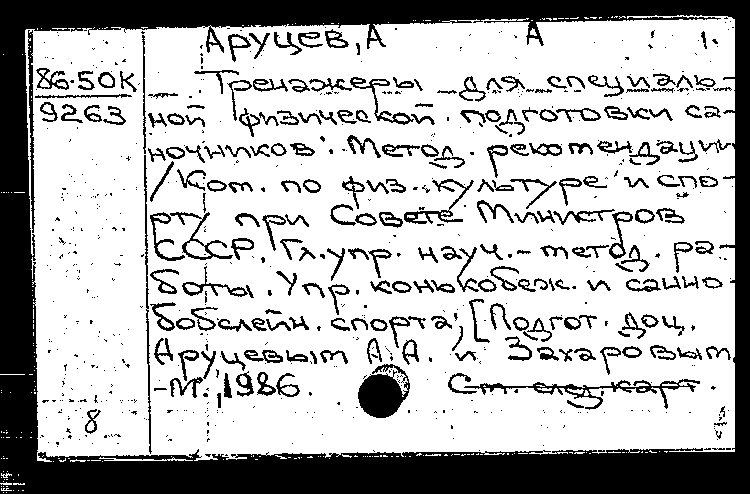 Аруцев, А   А   1.
86-50К
9263
Тренажеры для специаль-
ной физической подготовки са-
ночников: Метод. рекомендации
/ Ком. по физ. культуре и спо-
рту при Совете Министров
СССР, Гл. упр. науч.-метод. ра-
боты. Упр. конькобеж. и санно-
бобслейн. спорта; [Подгот. доц.
Аруцевым А.А. и Захаровым
-М., 1986.   См. след. карт.
8